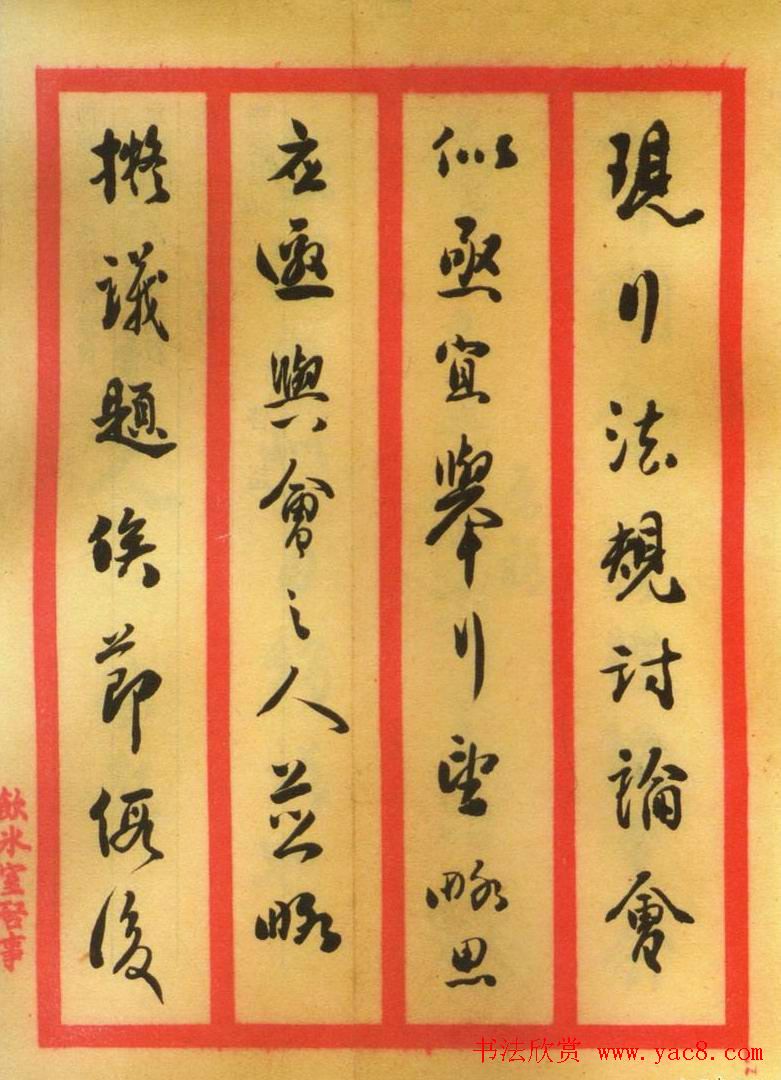 現行法規討論會
似亟宜舉行望略思
應邀與會之人並略
擬議題俟節假後
飲冰室啓事
书法欣赏 www.yac8.com